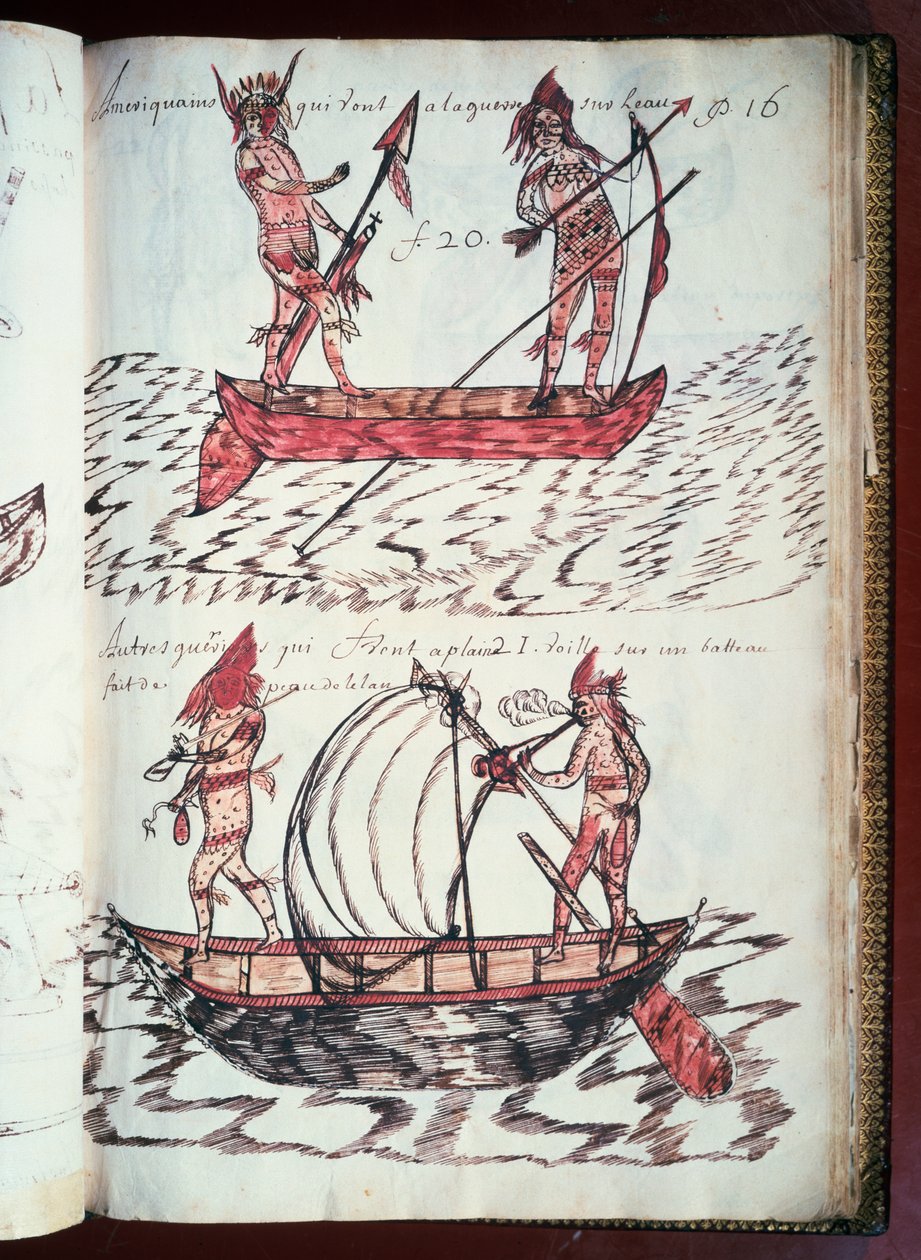 Ameriquains qui vont a la guerre sur leau p. 16
f 20.
Autres guerriers qui vont a plain I. voille sur un batteau
fait de peau de lelan